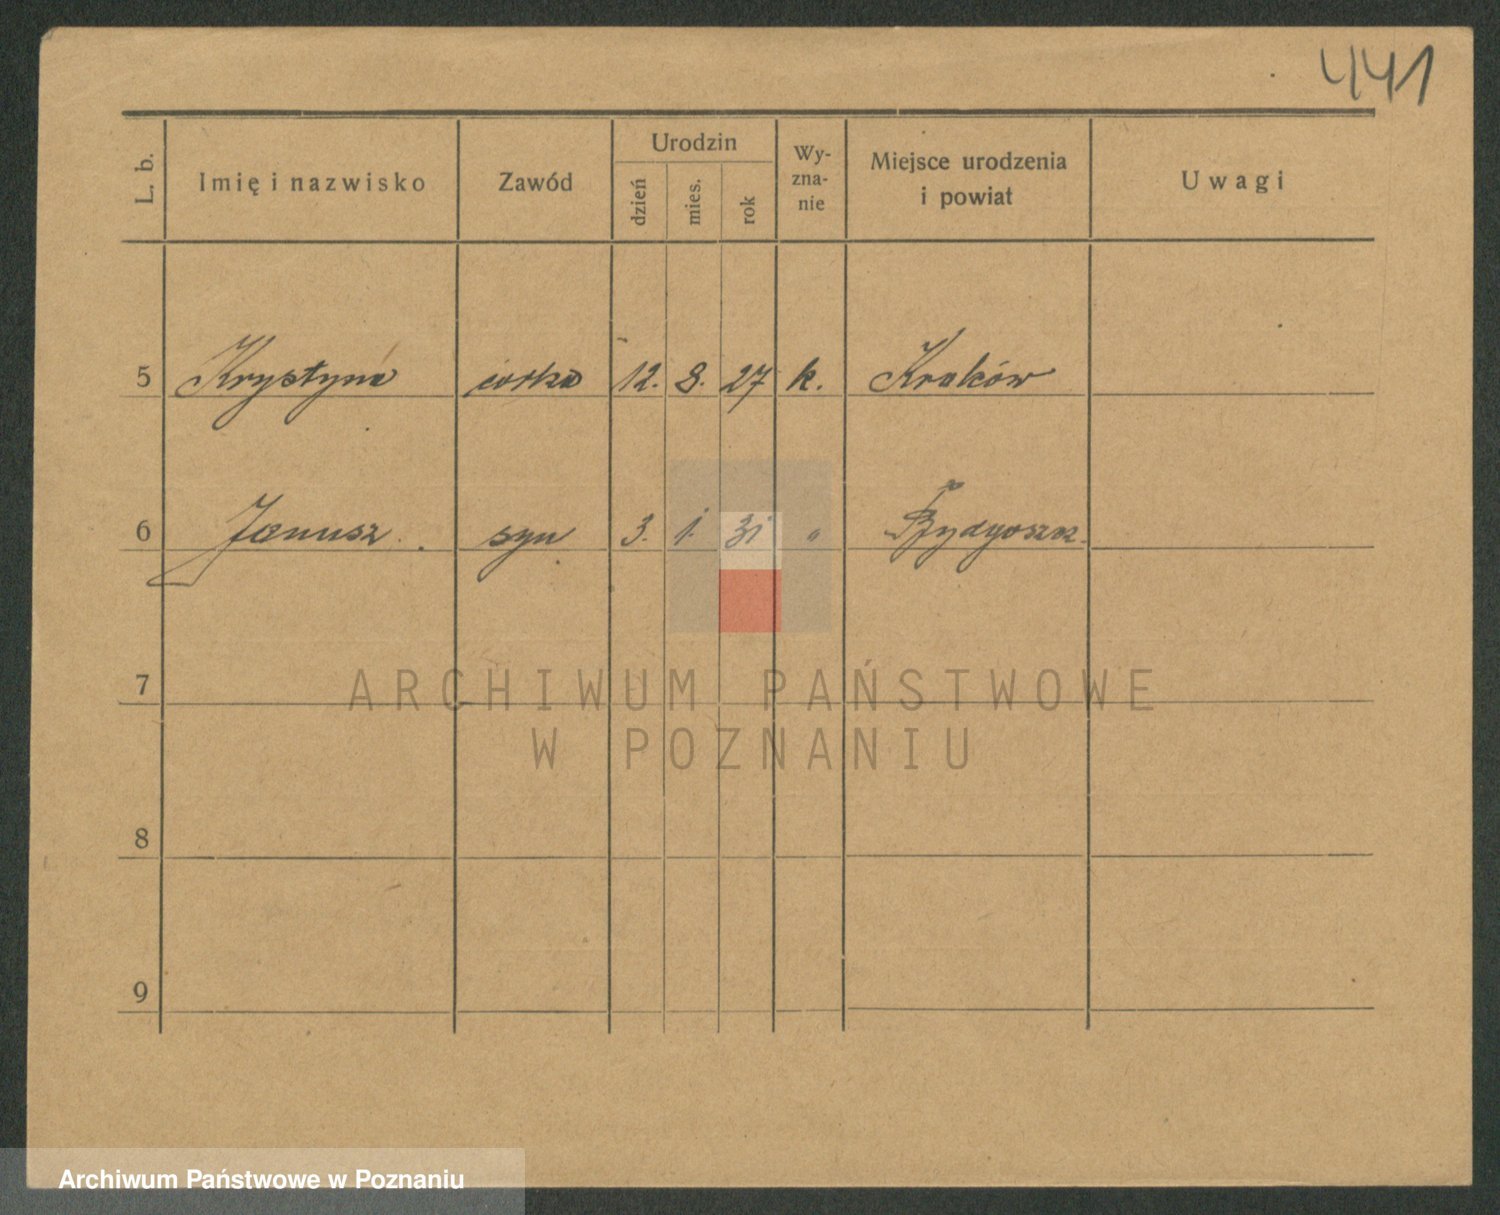 441
L. b. Imię i nazwisko Zawód Urodzin dzień mies. rok Wy-zna-nie Miejsce urodzenia i powiat Uwagi
5 Krystyna córka 12. 8. 27 k. Kraków
6 Janusz syn 3. 1. 31 " Bydgoszcz
7
8
9
ARCHIWUM PAŃSTWOWE
W POZNANIU
Archiwum Państwowe w Poznaniu